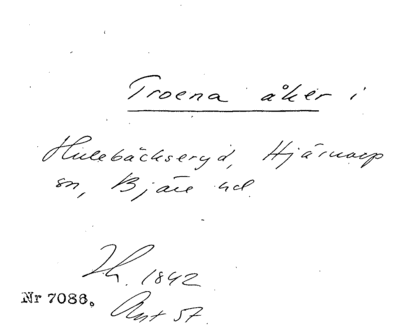 Troena åker i
Hulebäckseryd, Hjärnarp
sn, Bjäre hd
Th. 1842
Nr 7086. Avst 57